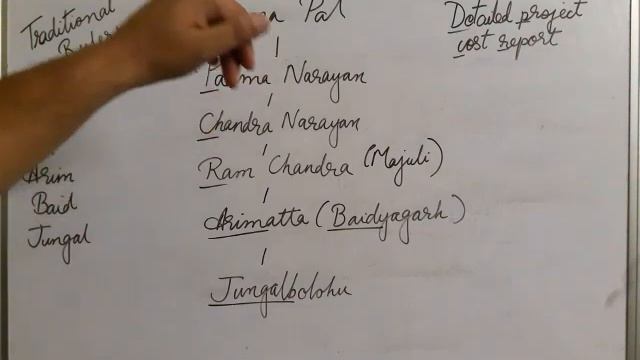 Traditional
Pal
Narayan
Chandra Narayan
Ram Chandra (Majuli)
Arimatta (Baidyagarh)
Jungalbolohu
Arim
Baid
Jungal
Detailed project
cost report